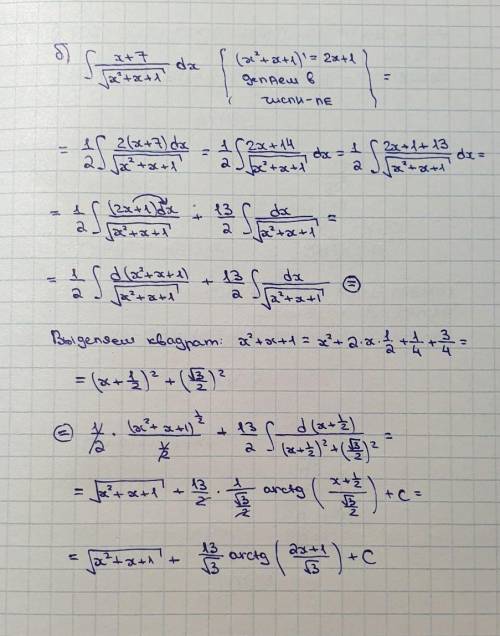 б) ∫ (x+7)/√(x²+x+1) dx { (x²+x+1)' = 2x+1 делаем в числи-ле } =
= 1/2 ∫ 2(x+7)dx/√(x²+x+1) = 1/2 ∫ (2x+14)/√(x²+x+1) dx = 1/2 ∫ (2x+1+13)/√(x²+x+1) dx =
= 1/2 ∫ (2x+1)dx/√(x²+x+1) + 13/2 ∫ dx/√(x²+x+1) =
= 1/2 ∫ d(x²+x+1)/√(x²+x+1) + 13/2 ∫ dx/√(x²+x+1) ⊜
Выделяем квадрат: x²+x+1 = x²+2·x·1/2+1/4+3/4 =
= (x+1/2)² + (√3/2)²
⊜ 1/2 · (x²+x+1)^(1/2)/(1/2) + 13/2 ∫ d(x+1/2)/((x+1/2)²+(√3/2)²) =
= √(x²+x+1) + 13/2 · 1/(√3/2) arctg((x+1/2)/(√3/2)) + C =
= √(x²+x+1) + 13/√3 arctg((2x+1)/√3) + C